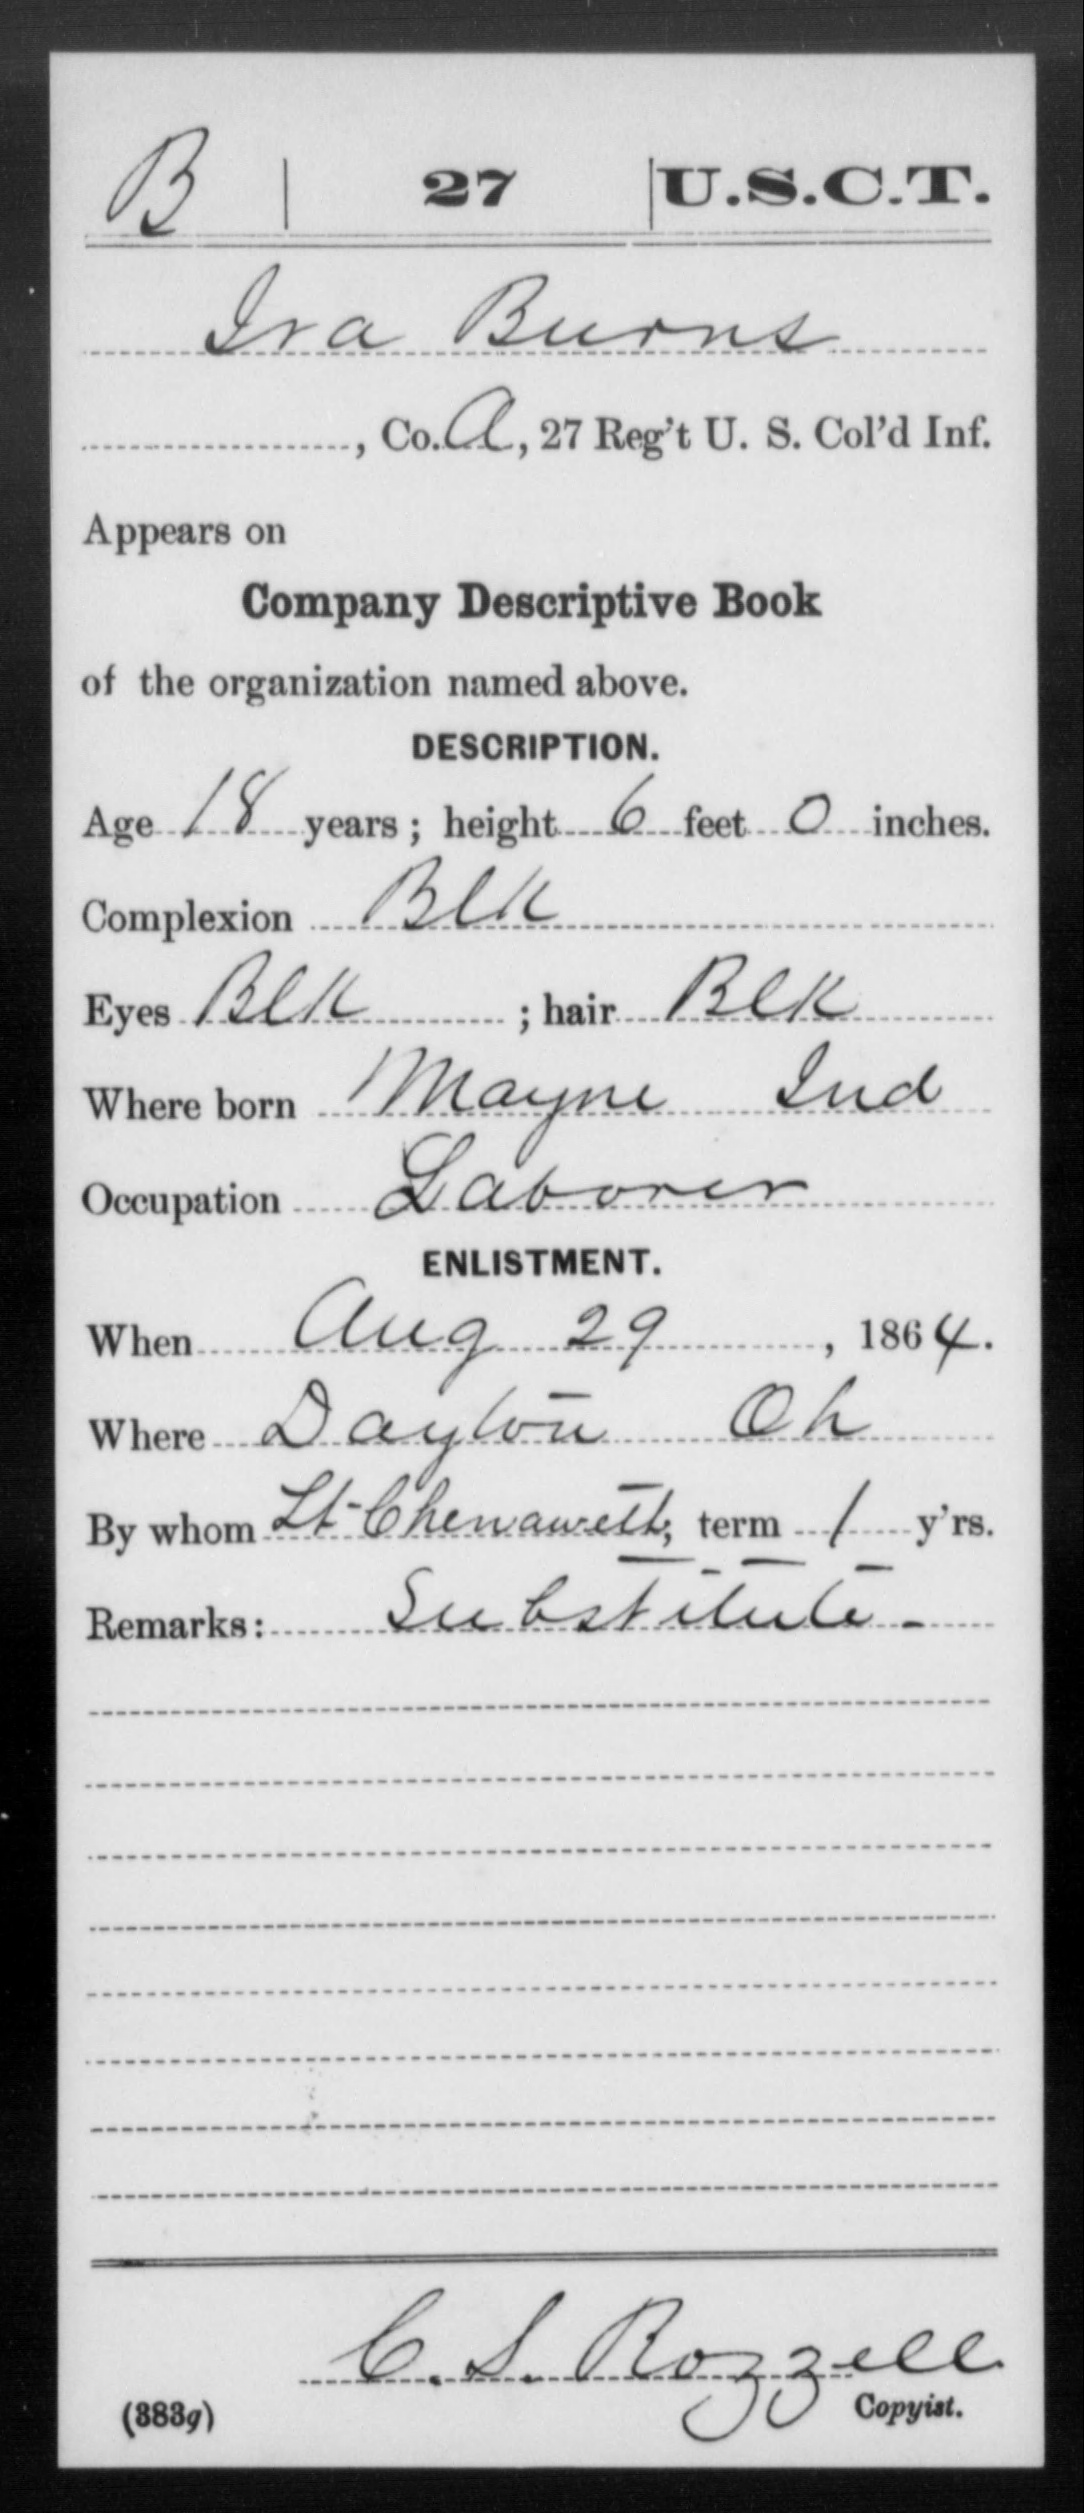 B | 27 | U.S.C.T.
Ira Burns
, Co. A, 27 Reg't U. S. Col'd Inf.
Appears on
Company Descriptive Book
of the organization named above.
DESCRIPTION.
Age 18 years; height 6 feet 0 inches.
Complexion Blk
Eyes Blk ; hair Blk
Where born Mayne Ind
Occupation Laborer
ENLISTMENT.
When Aug 29, 1864.
Where Dayton Oh
By whom Lt Chenawett; term 1 y'rs.
Remarks: Substitute -
C. S. Rozzell
(383g) Copyist.